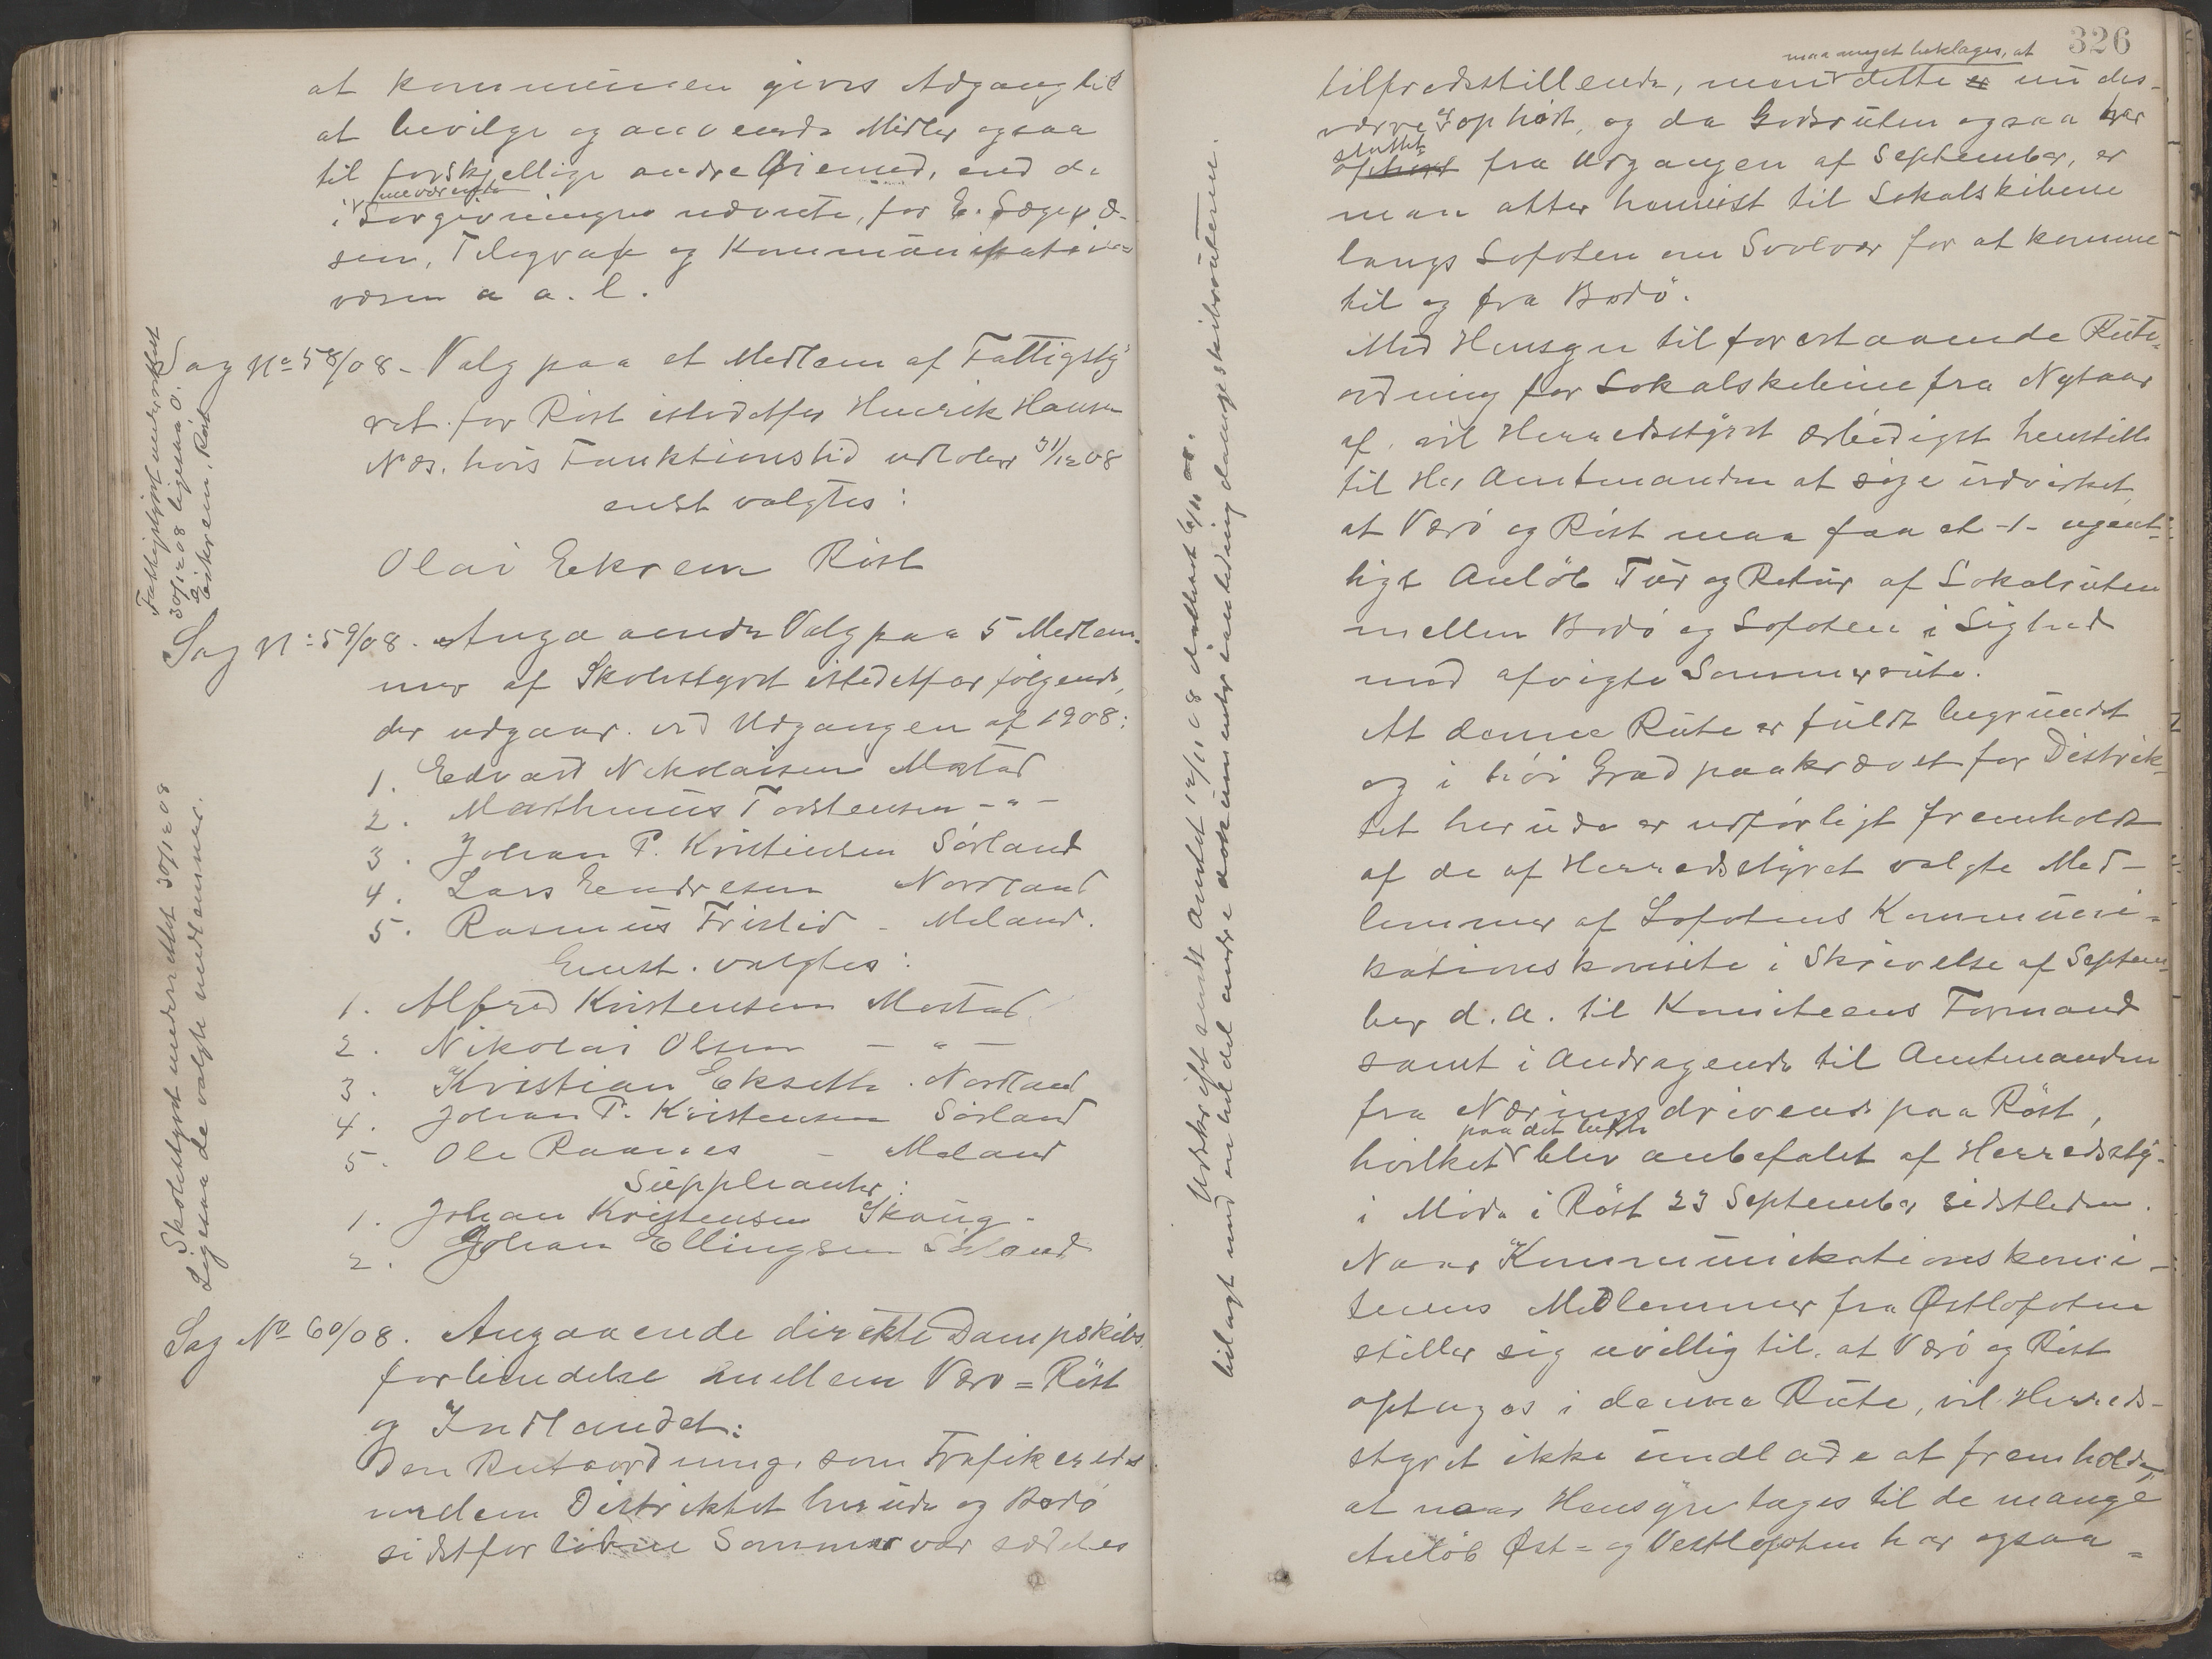 at kommunen gives Adgang til
at bevilge og anvende Midler ogsaa
til forskjellige andre Øiemed, end de
nuværende
i Lovgivningen nævnte, for E. Lægevæ-
sen, Telegraf og Kommunikations
væsen a a. l.
Sag No 58/08 - Valg paa et Medlem af Fattigsty
ret for Röst istedetfor Henrik Hansen
Næs. hvis Funktionstid udløber 31/12 08
enst valgtes:
Olai Ekrem Röst
Fattigstyret underrettet
30/12 08 ligesaa O.
Ekrem, Röst
Sag N: 59/08. Angaaende Valg paa 5 Medlem-
mer af Skolestyret istedetfor følgende,
der udgaar ved Udgangen af 1908:
1. Edvart Nikolaisen Mostad
2. Marthinus Torstensen - " -
3. Johan P. Kristensen Sörland
4. Lars Endresen Nordland
5. Rasmus Fristid - Meland.
Enst. valgtes:
1. Alfred Kristensen Mostad
2. Nikolai Olsen - " -
3. Kristian Ekseth. Nordland
4. Johan P. Kristensen Sörland
5. Ole Raanes - Meland
Suppleanter:
1. Johan Kristensen Skaug.
2. Johan Ellingsen Sörland
Skolestyret underrettet 30/12 08
Ligesaa de valgte medlemmer.
Sag No 60/08. Angaaende direkte Dampskibs
forbindelse mellem Værö = Röst
og Indlandet:
Den Ruteordning, som Trafikeredes
mellem Distriktet herude og Bodö
sidstforløbne Sommer var særdeles
Udskrift sendt Amtet 12/11 08
bilagt med en hel del andre dokumenter i anledning dampskibsruterne.
326
maa meget beklages, at
tilfredsstillende, men dette er nu des-
værre er ophört, og da Godsruten ogsaa har
sluttet
ophört fra Udgangen af September, er
man atter henvist til Lokalskibene
langs Lofoten om Svolvær for at komme
til og fra Bodö.
Med Hensyn til forestaaende Rute-
ordning for Lokalskibene fra Nytaar
af, vil Herredsstyret ærbödigst henstille
til Hr. Amtmanden at söge udvirket,
at Værö og Röst maa faa et -1- ugent-
ligt Anlöb Tur og Retur af Lokalruten
mellem Bodö og Lofoten i Lighed
med afvigte Sommerrute.
At denne Rute er fuldt begrundet
og i höi Grad paakrævet for Distrik-
tet herude er udförligt fremholdt
af de af Herredsstyret valgte Med-
lemmer af Lofotens Kommuni-
kationskomite i Skrivelse af Septem-
ber d. A. til Komiteens Formand
samt i Andragende til Amtmanden
fra Næringsdrivende paa Röst,
paa det bedste
hvilket blev anbefalet af Herredssty-
i Möde i Röst 23 September sidstleden.
Naar Kommunikationskomi-
teens Medlemmer fra Østlofoten
stiller sig uvillig til, at Værö og Röst
optages i denne Rute, vil Herreds-
styret ikke undlade at fremholde,
at naar Hensyn tages til de mange
Anlöb Øst- og Vestlofoten har ogsaa